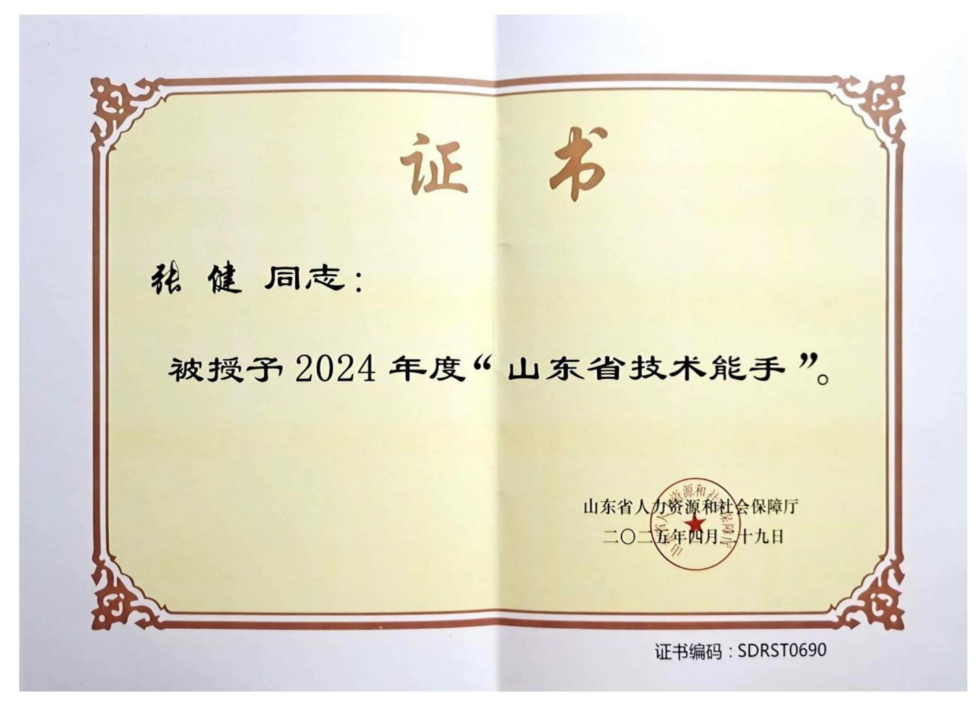 证书
张健同志：
被授予2024年度“山东省技术能手”。
山东省人力资源和社会保障厅
二〇二五年四月二十九日
山东省人力资源和社会保障厅
证书编码：SDRST0690